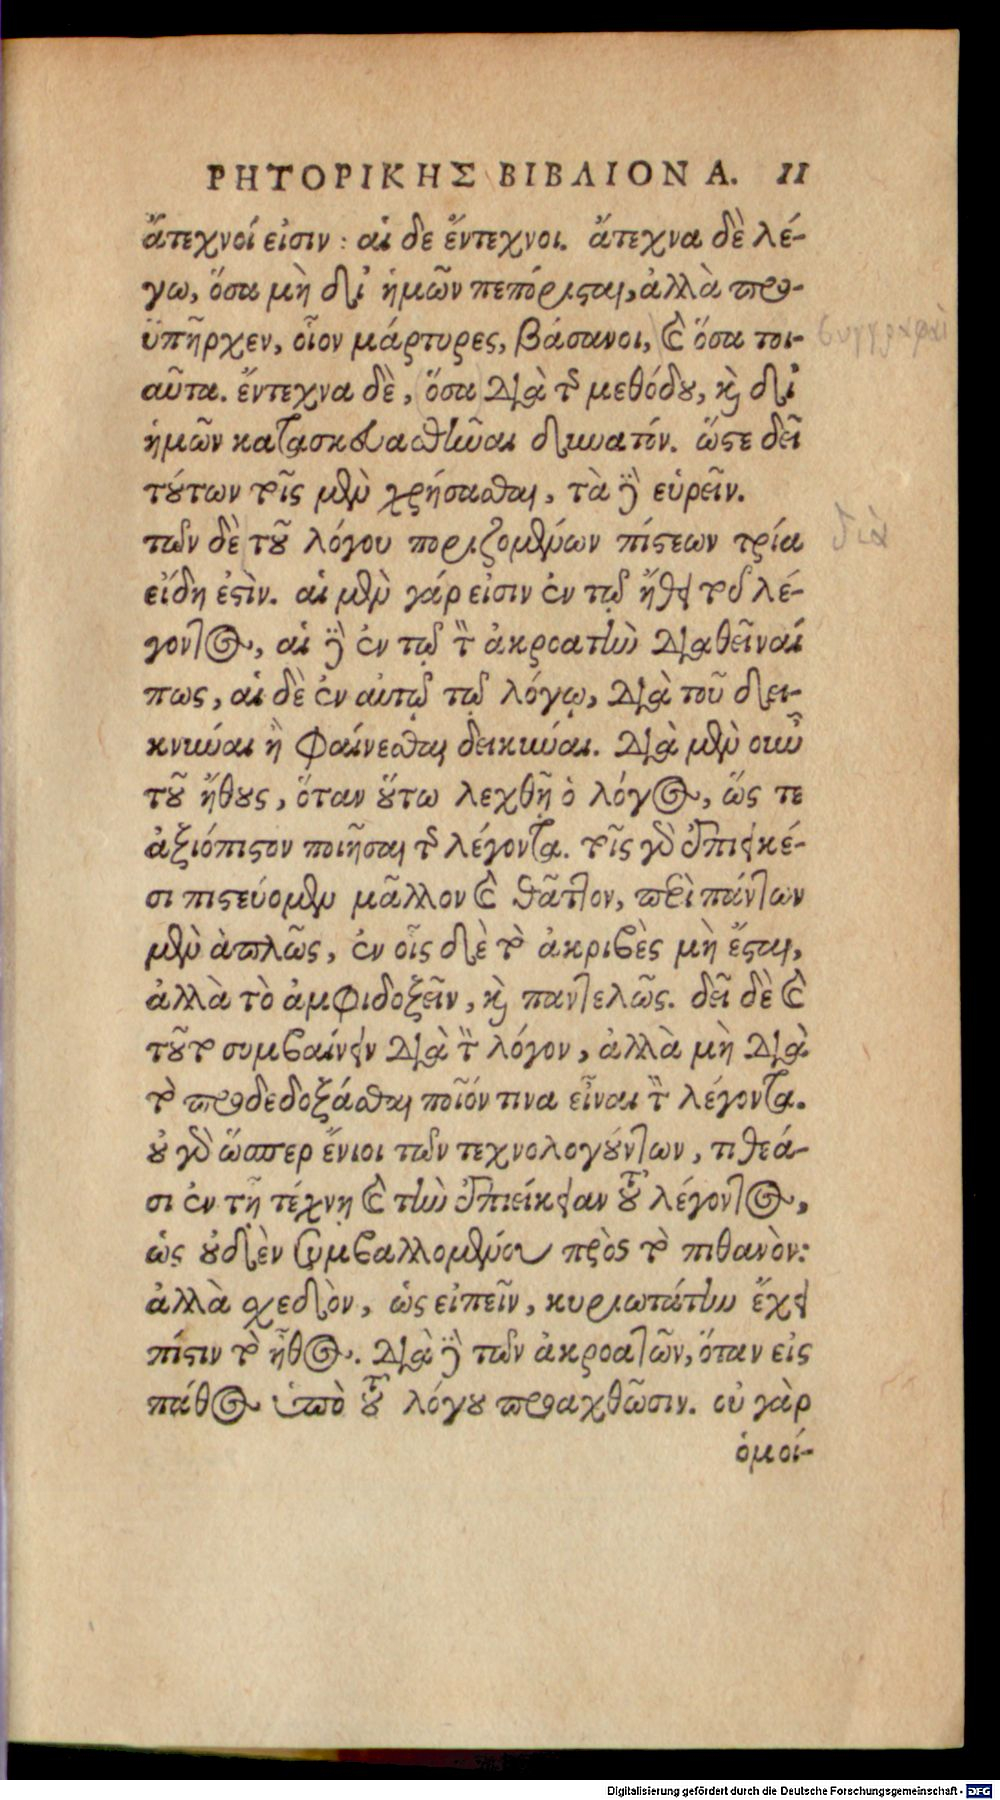 ΡΗΤΟΡΙΚΗΣ ΒΙΒΛΙΟΝ Α. 11
ἄτεχνοί εἰσιν : αἱ δε ἔντεχνοι. ἄτεχνα δὲ λέ-
γω, ὅσα μὴ δι' ἡμῶν πεπόρισται, ἀλλὰ προ-
ϋπῆρχεν, οἷον μάρτυρες, βάσανοι, καὶ ὅσα τοι-
αῦτα. ἔντεχνα δὲ, ὅσα διὰ τῆς μεθόδου, καὶ δι'
ἡμῶν κατασκευασθῆναι δυνατόν. ὥστε δεῖ
τούτων τοῖς μὲν χρήσασθαι, τὰ δὲ εὑρεῖν.
τῶν δὲ τοῦ λόγου ποριζομένων πίστεων τρία
εἴδη ἐστὶν. αἱ μὲν γάρ εἰσιν ἐν τῷ ἤθει τοῦ λέ-
γοντος, αἱ δὲ ἐν τῷ τὸν ἀκροατὴν διαθεῖναί
πως, αἱ δὲ ἐν αὐτῷ τῷ λόγῳ, διὰ τοῦ δει-
κνύναι ἢ φαίνεσθαι δεικνύναι. διὰ μὲν οὖν
τοῦ ἤθους, ὅταν οὕτω λεχθῇ ὁ λόγος, ὥς τε
ἀξιόπιστον ποιῆσαι τὸν λέγοντα. τοῖς γὰρ ἐπιεικέ-
σι πιστεύομεν μᾶλλον καὶ θᾶττον, περὶ πάντων
μὲν ἁπλῶς, ἐν οἷς δὲ τὸ ἀκριβὲς μὴ ἔσται,
ἀλλὰ τὸ ἀμφιδοξεῖν, καὶ παντελῶς. δεῖ δὲ καὶ
τοῦτο συμβαίνειν διὰ τὸν λόγον, ἀλλὰ μὴ διὰ
τὸ προδεδοξάσθαι ποῖόν τινα εἶναι τὸν λέγοντα.
οὐ γὰρ ὥσπερ ἔνιοι τῶν τεχνολογούντων, τιθεά-
σι ἐν τῇ τέχνῃ καὶ τὴν ἐπιείκειαν τοῦ λέγοντος,
ὡς οὐδὲν συμβαλλομένην πρὸς τὸ πιθανὸν:
ἀλλὰ σχεδὸν, ὡς εἰπεῖν, κυριωτάτην ἔχει
πίστιν τὸ ἦθος. διὰ δὲ τῶν ἀκροατῶν, ὅταν εἰς
πάθος ὑπὸ τοῦ λόγου προαχθῶσιν. οὐ γὰρ
ὁμοί-
συγγραφαὶ
διὰ
Digitalisierung gefördert durch die Deutsche Forschungsgemeinschaft - DFG